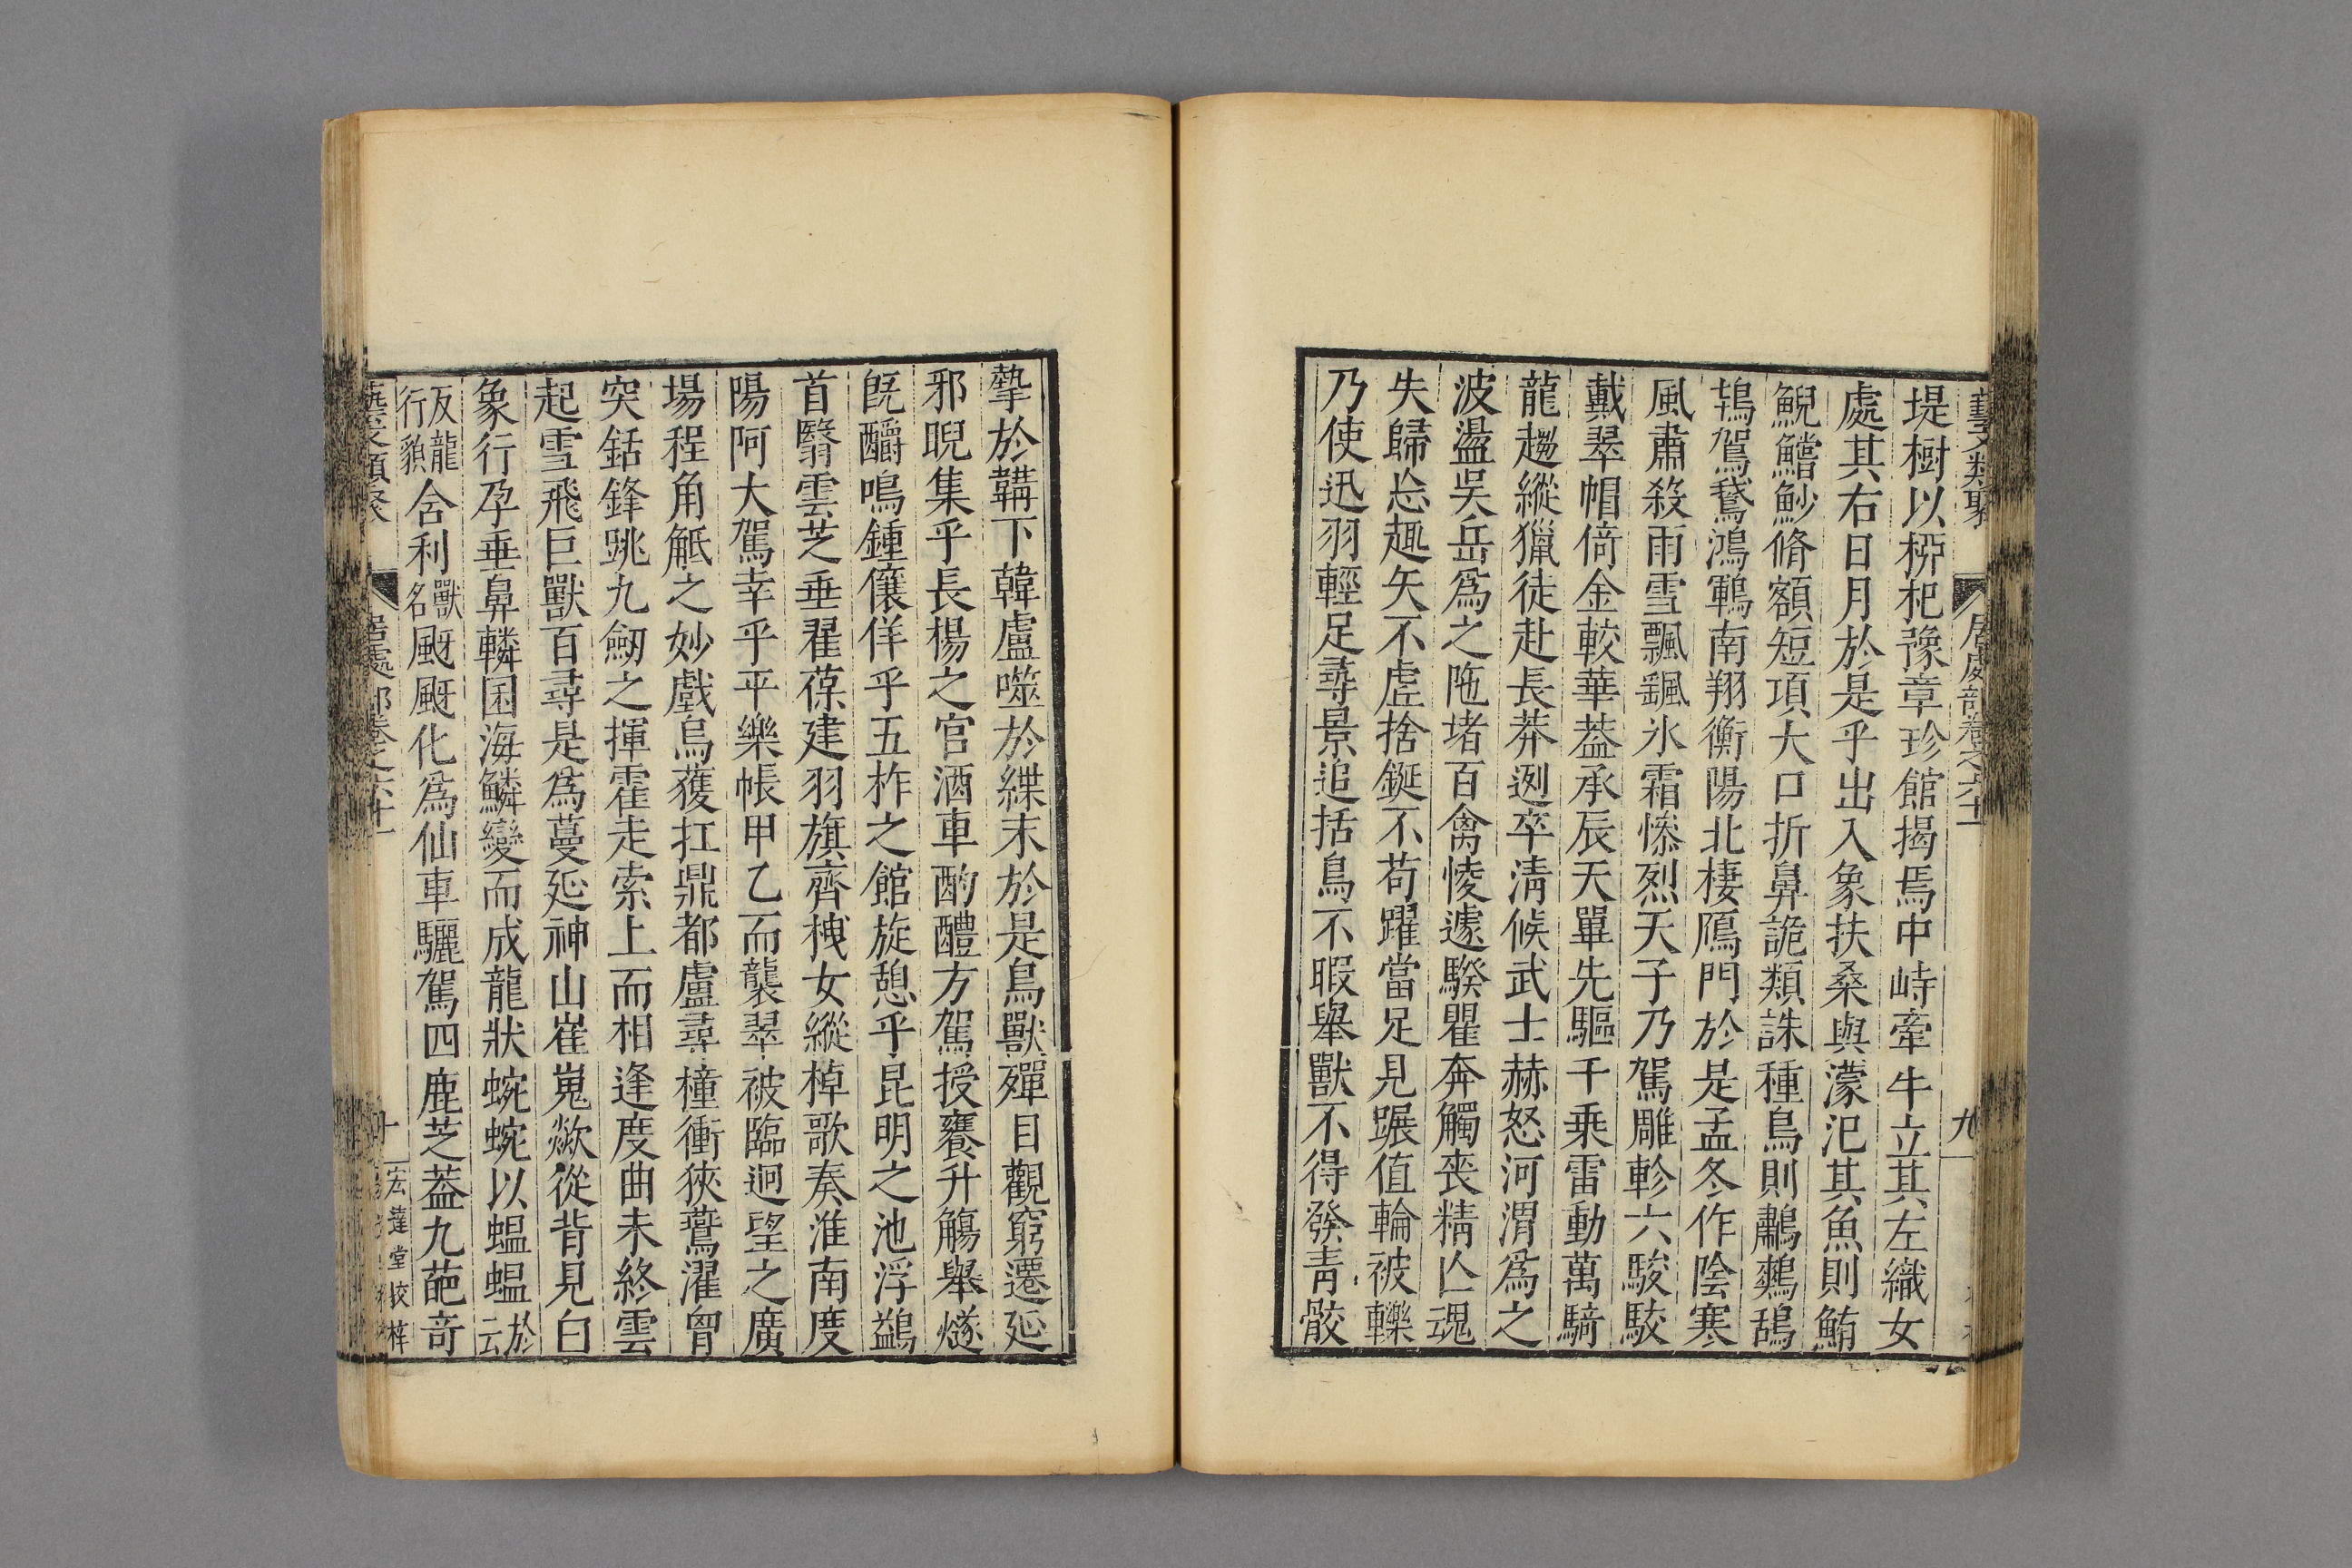 藝文類聚 居處部卷之六十一 九
堤樹以桺杞豫章珍館揭焉中峙牽牛立其左織女
處其右日月於是乎出入象扶桑與濛汜其魚則鮪
鯢鱨魦脩額短項大口折鼻詭類誅種鳥則鷫鷞鴰
鴇鴐鵞鴻鶤南翔衡陽北棲鴈門於是孟冬作陰寒
風肅殺雨雪飄颻氷霜慘烈天子乃駕雕軫六駿駮
戴翠帽倚金較華葢承辰天單先驅千乘雷動萬騎
龍趨縱獵徒赴長莽迾卒清候武士赫怒河渭爲之
波盪吳岳爲之陁堵百禽㥄遽騤瞿奔觸丧精亾魂
失歸忘趣矢不虗捨鋋不苟躍當足見蹍值輪被轢
乃使迅羽輕足尋景追括鳥不暇舉獸不得發青骹
摯於鞲下韓盧噬於緤末於是鳥獸殫目觀窮遷延
邪睨集乎長楊之官酒車酌醴方駕授饔升觴舉燧
旣釂鳴鍾儴佯乎五柞之館旋憩乎昆明之池浮鷁
首翳雲芝垂翟葆建羽旗齊栧女縱棹歌奏淮南度
陽阿大駕幸乎平樂帳甲乙而襲翠被臨迥望之廣
場程角觝之妙戲烏獲扛鼎都盧尋橦衝狹鷰濯胷
突銛鋒跳九劒之揮霍走索上而相逢度曲未終雲
起雪飛巨獸百尋是爲蔓延神山崔嵬歘從背見白
象行孕垂鼻轔囷海鱗變而成龍狀蜿蜿以蝹蝹於云
反龍行貌舍利獸名颬颬化爲仙車驪駕四鹿芝葢九葩竒
藝文類聚 居處部卷之六十一 十 宏達堂校梓